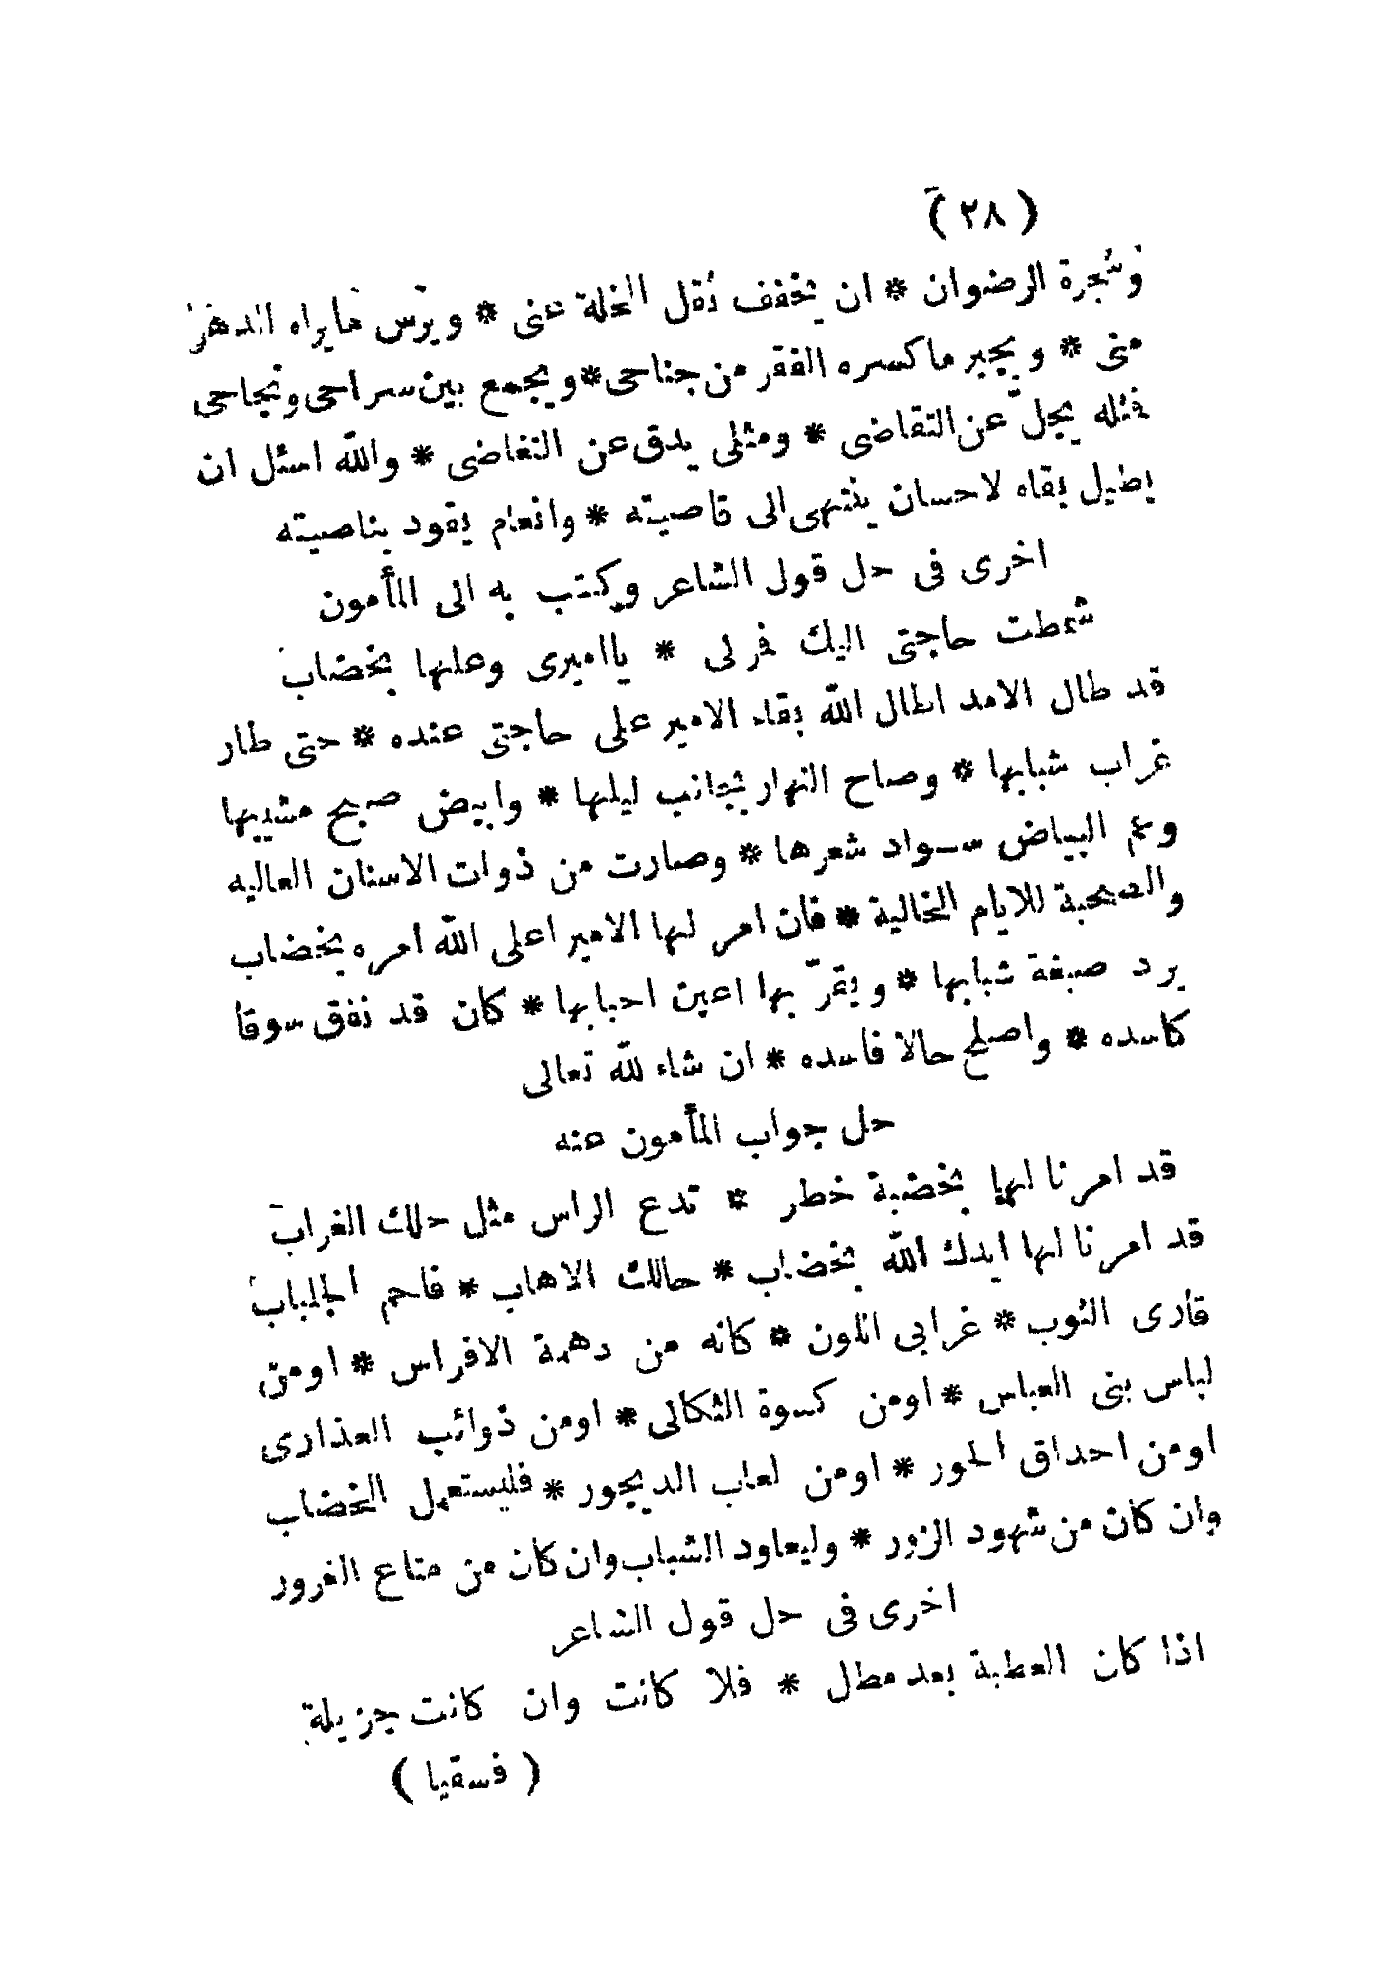 ( ٢٨ )
وشجرة الرضوان * ان يخفف ثقل الخلة عنى * ويرس مايراه الدهر
منى * ويجبر ماكسره الفقر من جناحى * ويجمع بين سراحى ونجاحى
فمثله يجلّ عن التقاضى * ومثلى يدق عن التغاضى * واللّه اسئل ان
يطيل بقاه لاحسان ينتهى الى قاصيته * وانعام يقود بناصيته
اخرى فى حل قول الشاعر وكتب به الى المأمون
شمطت حاجتى اليك فمر لى * يااميرى وعلها بخضاب
قد طال الامد اطال اللّه بقاء الامير على حاجتى عنده * حتى طار
غراب شبابها * وصاح النهار بجانب ليلها * وابيض صبح مشيبها
وعم البياض سواد شعرها * وصارت من ذوات الاسنان العاليه
والصحبة للايام الخالية * فان امر لها الامير اعلى اللّه امره بخضاب
يرد صبغة شبابها * ويقرّ بها اعين احبابها * كان قد نفق سوقا
كاسده * واصلح حالا فاسده * ان شاء للّه تعالى
حل جواب المأمون عنه
قد امرنا لها بخضبة خطر * تدع الراس مثل حلك الغراب
قد امرنا لها ايدك اللّه بخضاب * حالك الاهاب * فاحم الجلباب
قارى الثوب * غرابى اللون * كانه من دهمة الافراس * اومن
لباس بنى العباس * اومن كسوة الثكالى * اومن ذوائب العذارى
اومن احداق الحور * اومن لعاب الديجور * فليستعمل الخضاب
وان كان من شهود الزور * وليعاود الشباب وان كان من متاع الغرور
اخرى فى حل قول الشاعر
اذا كان العطية بعد مطل * فلا كانت وان كانت جزيلة
( فسقيا )